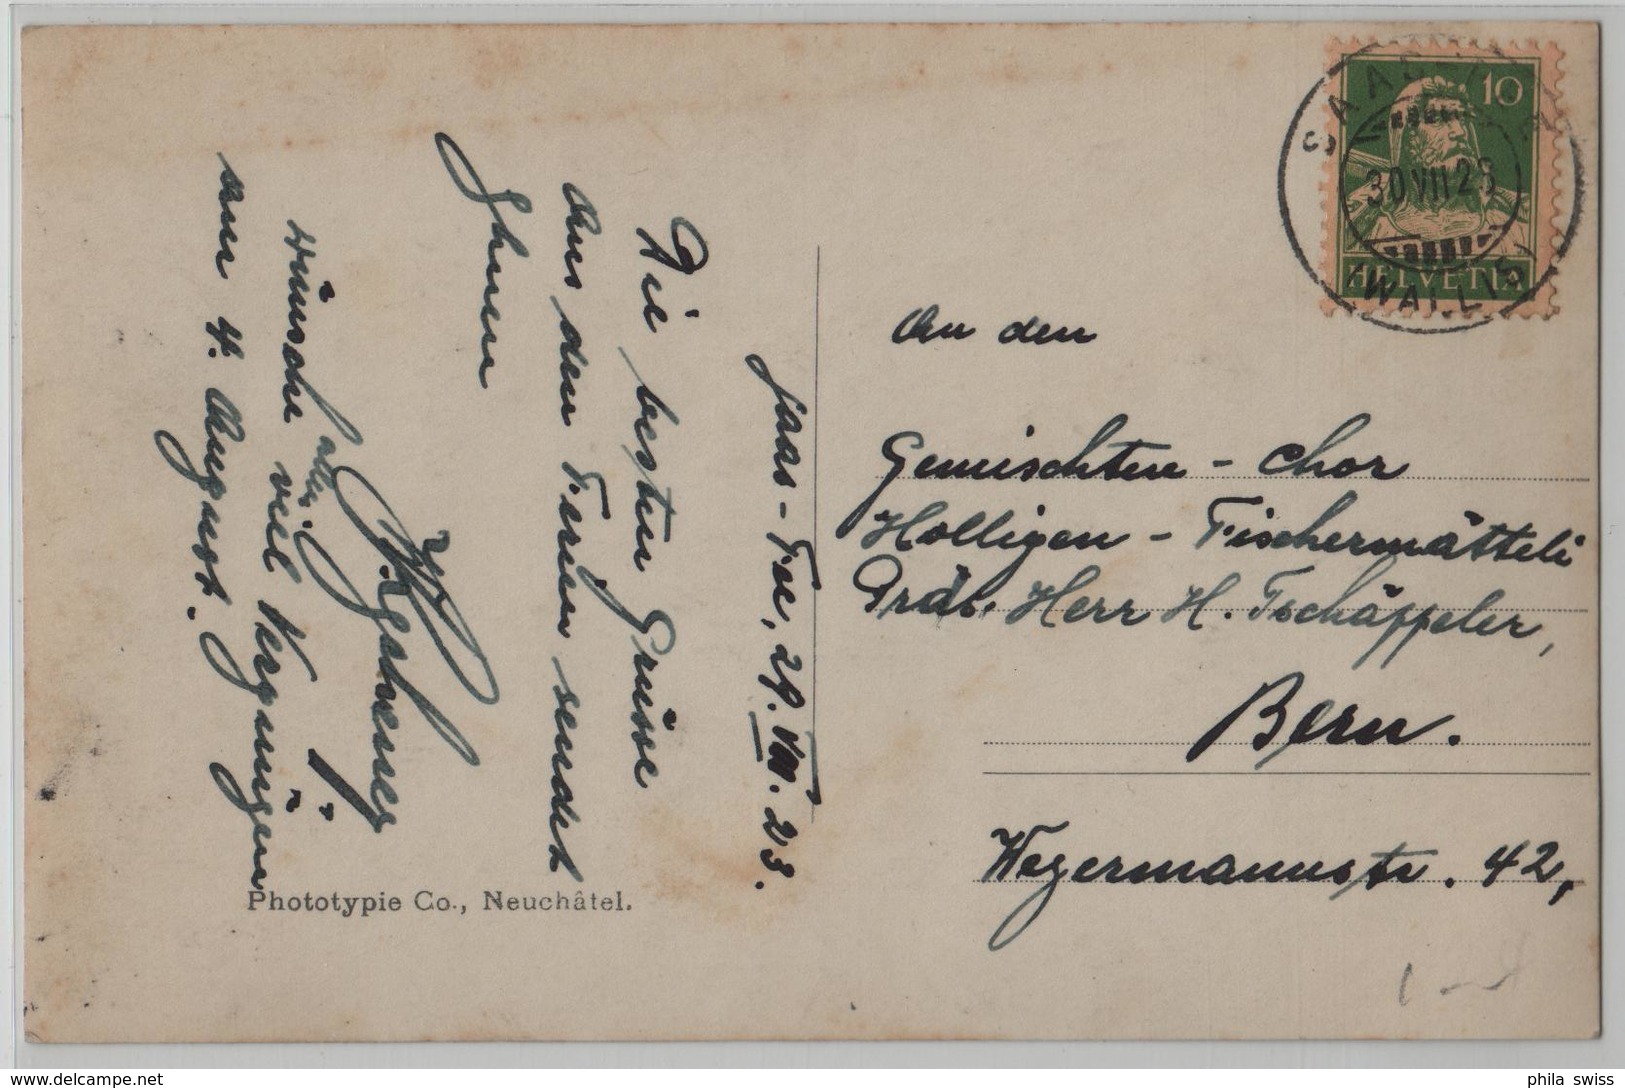 Saas-Fee, 29. VII. 23.
Die besten Grüsse
aus den Ferien sendet
Ihnen
Wünsche allen viel Vergnügen
am 4. August.
Phototypie Co., Neuchâtel.
10
HELVETIA
SAAS
30.VII.23
(WALLIS)
An den
Gemischten - Chor
Holligen - Fischermätteli
Präs. Herr H. Tschäppeler,
Bern.
Wegermannstr. 42,
phila swiss